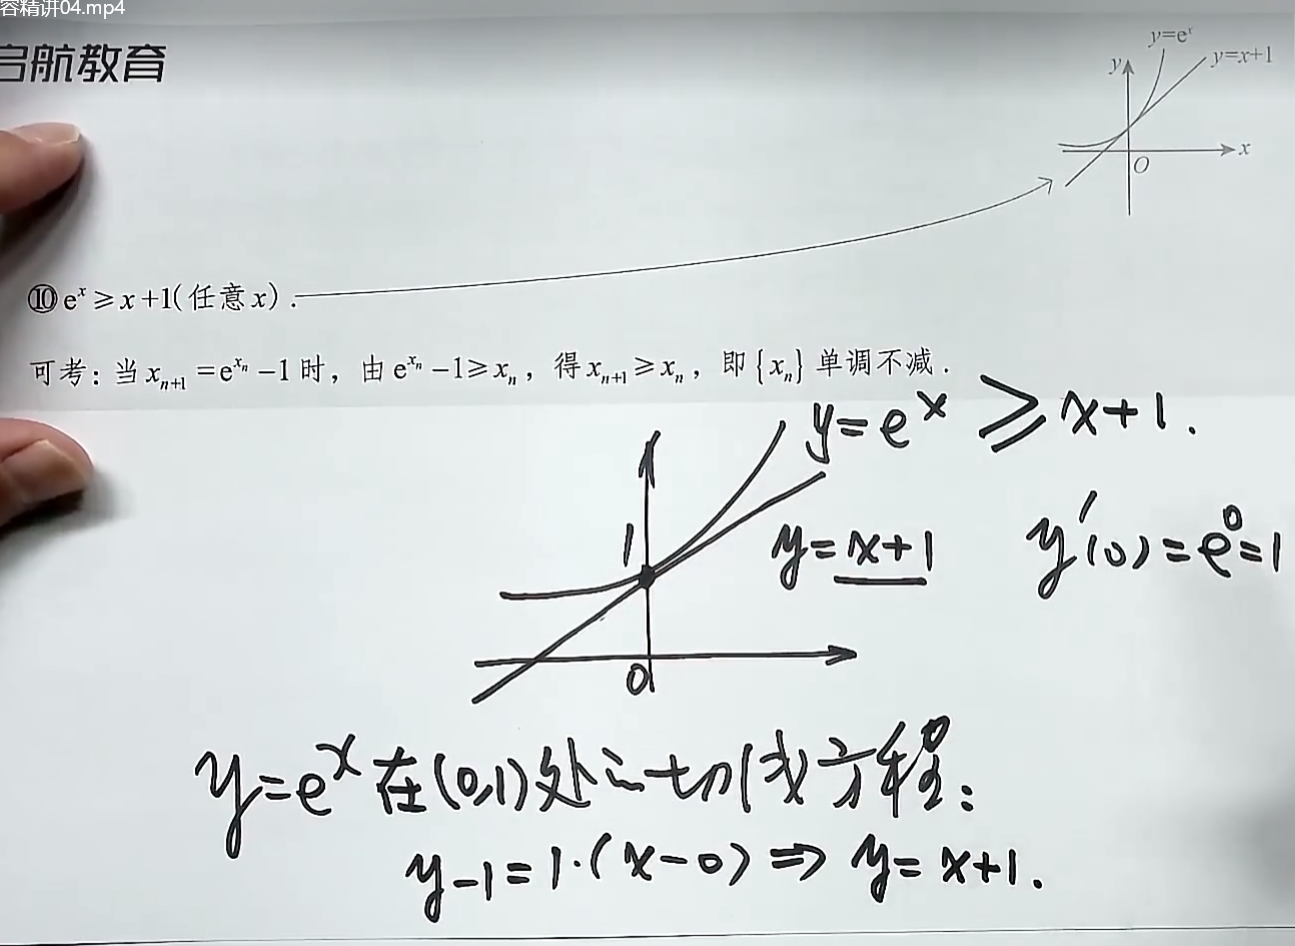 容精讲04.mp4
启航教育
y=eˣ
y=x+1
y
x
O
⑩ eˣ ≥ x+1(任意 x) .
可考: 当 xₙ₊₁ = e^{xₙ} −1 时, 由 e^{xₙ} −1 ≥ xₙ, 得 xₙ₊₁ ≥ xₙ, 即 {xₙ} 单调不减 .
y=eˣ ≥ x+1.
1
y=x+1
y′(0)=e⁰=1
0
y=eˣ在(0,1)处之切线方程:
y−1=1·(x−0)⇒ y=x+1.